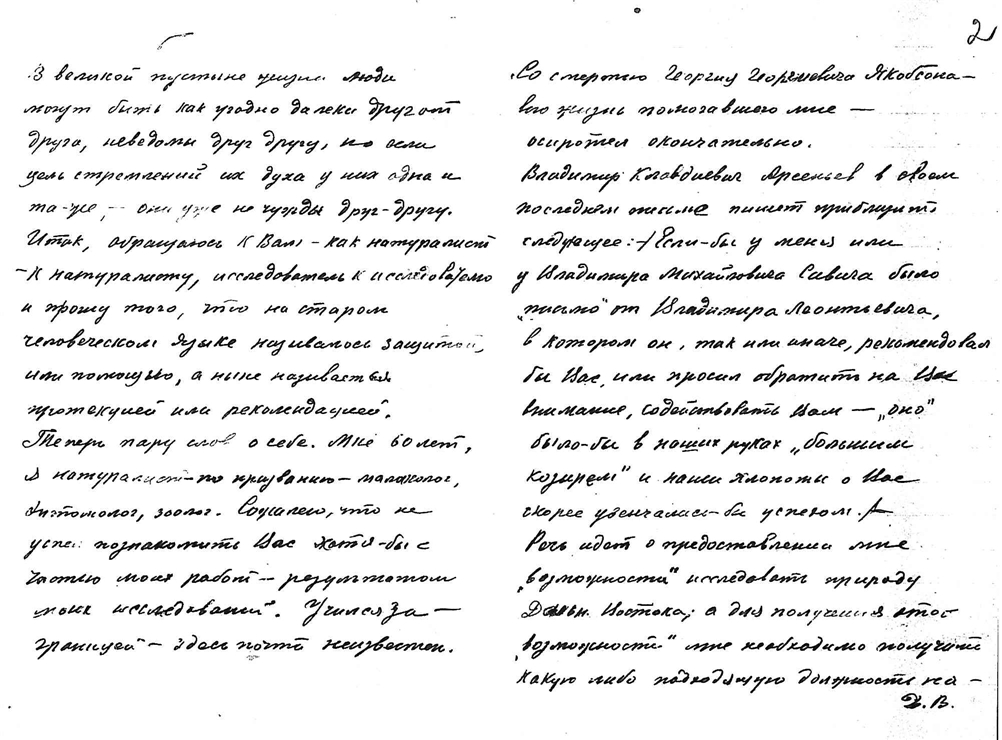 В великой пустыне жизни люди
могут быть как угодно далеки друг от
друга, неведомы друг другу, но если
цель стремлений их духа у них одна и
та-же, – они уже не чужды друг-другу.
Итак, обращаюсь к Вам – как натуралист
– к натуралисту, исследователь к исследователю
и прошу того, что на старом
человеческом языке называлось защитой,
или помощью, а ныне называется
протекцией или рекомендацией.
Теперь пару слов о себе. Мне 60 лет,
я натуралист – по призванию – малаколог,
энтомолог, зоолог. Сожалею, что не
успел познакомить Вас хотя-бы с
частью моих работ – результатом
моих исследований. Учился за –
границей – здесь почти неизвестен.
2
Со смертью Георгия Георгиевича Якобсона –
всю жизнь помогавшего мне –
осиротел окончательно.
Владимир Клавдиевич Арсеньев в своем
последнем письме пишет приблизит.
следующее: Если-бы у меня или
у Владимира Михайловича Савича было
„письмо" от Владимира Леонтьевича,
в котором он, так или иначе, рекомендовал
бы Вас, или просил обратить на Вас
внимание, содействовать Вам – „оно"
было-бы в наших руках „большим
козырем" и наши хлопоты о Вас
скорее увенчались-бы успехом.
Речь идет о предоставлении мне
„возможности" исследовать природу
Дальн. Востока; а для получения этой
„возможности" мне необходимо получить
какую либо подходящую должность на –
Д. В.